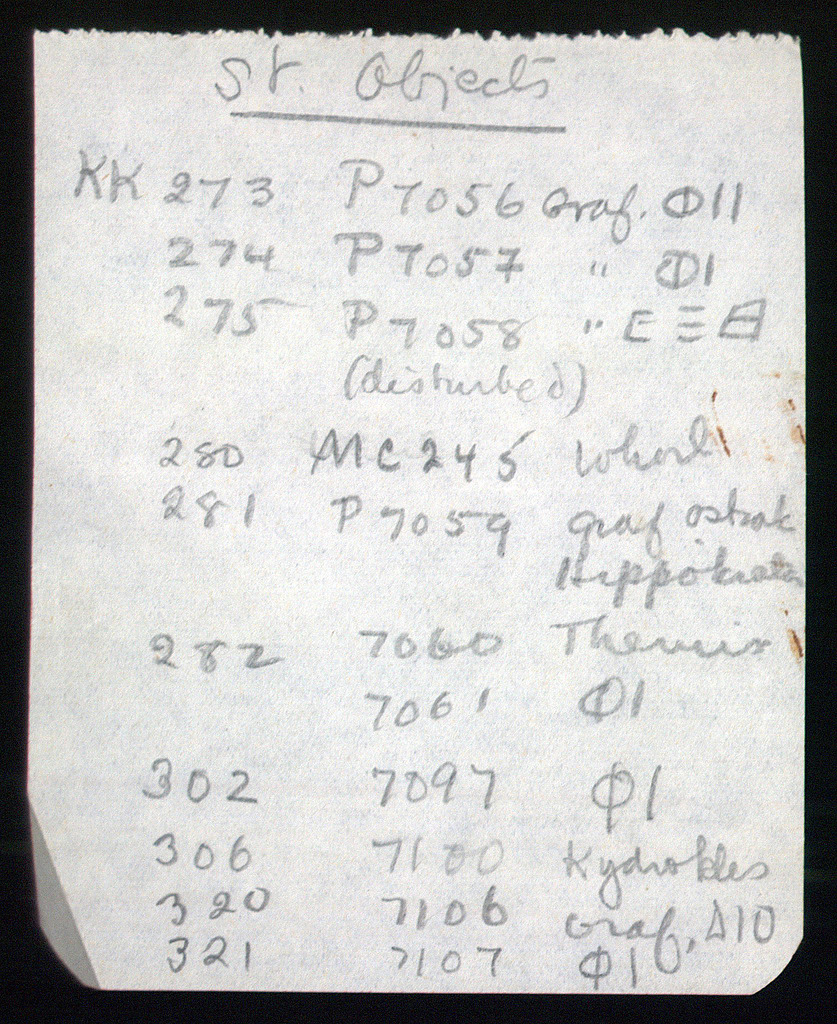 St. Objects
KK 273 P 7056 Graf. Φ11
274 P 7057 " Φ1
275 P 7058 " Ε Ξ
(disturbed)
280 MC 245 Whorl
281 P 7059 graf ostrak
Hippokrates
282 7060 Themis
7061 Φ1
302 7097 Φ1
306 7100 Kydrokles
320 7106 Graf, Δ10
321 7107 Φ1